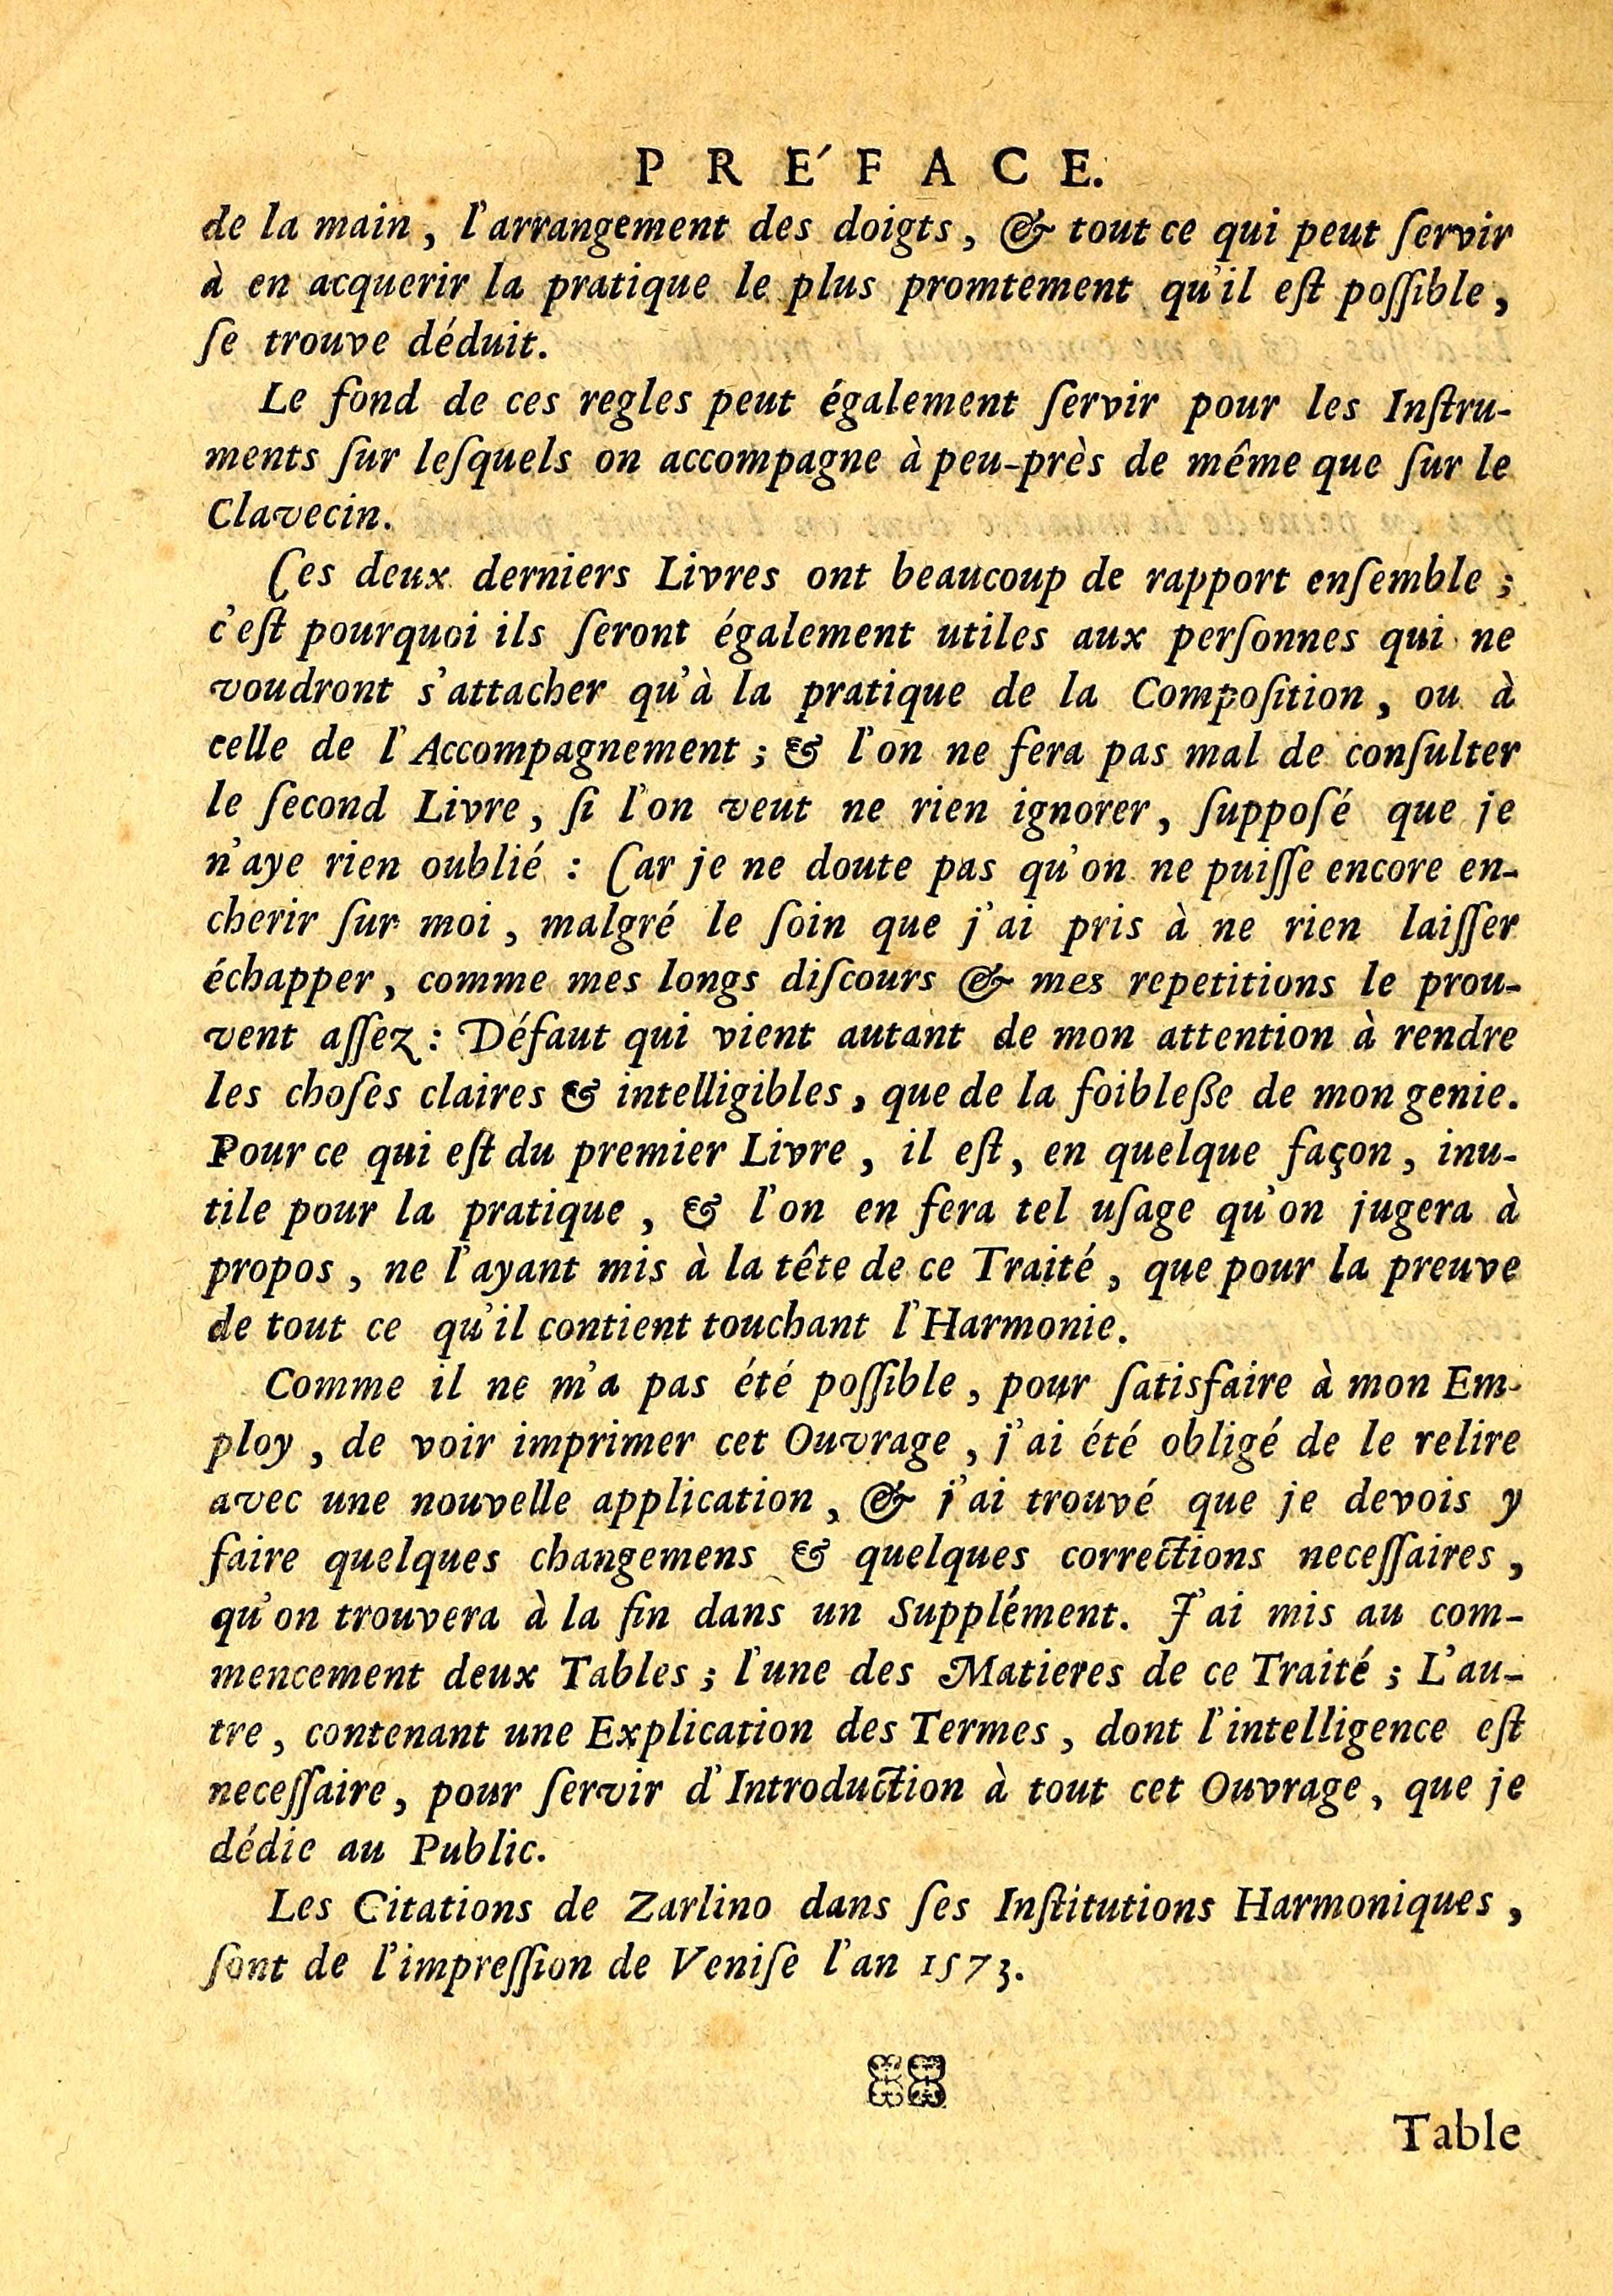 PRÉFACE.
de la main, l'arrangement des doigts, & tout ce qui peut ſervir
à en acquerir la pratique le plus promtement qu'il eſt poſſible,
ſe trouve déduit.
Le fond de ces regles peut également ſervir pour les Inſtru-
ments ſur leſquels on accompagne à peu-près de même que ſur le
Clavecin.
Ces deux derniers Livres ont beaucoup de rapport enſemble;
c'eſt pourquoi ils ſeront également utiles aux perſonnes qui ne
voudront s'attacher qu'à la pratique de la Compoſition, ou à
celle de l'Accompagnement; & l'on ne fera pas mal de conſulter
le ſecond Livre, ſi l'on veut ne rien ignorer, ſuppoſé que je
n'aye rien oublié : Car je ne doute pas qu'on ne puiſſe encore en-
cherir ſur moi, malgré le ſoin que j'ai pris à ne rien laiſſer
échapper, comme mes longs diſcours & mes repetitions le prou-
vent aſſez : Défaut qui vient autant de mon attention à rendre
les choſes claires & intelligibles, que de la foibleße de mon genie.
Pour ce qui eſt du premier Livre, il eſt, en quelque façon, inu-
tile pour la pratique, & l'on en fera tel uſage qu'on jugera à
propos, ne l'ayant mis à la tête de ce Traité, que pour la preuve
de tout ce qu'il contient touchant l'Harmonie.
Comme il ne m'a pas été poſſible, pour ſatisfaire à mon Em-
ploy, de voir imprimer cet Ouvrage, j'ai été obligé de le relire
avec une nouvelle application, & j'ai trouvé que je devois y
faire quelques changemens & quelques corrections neceſſaires,
qu'on trouvera à la fin dans un Supplément. J'ai mis au com-
mencement deux Tables; l'une des Matieres de ce Traité; L'au-
tre, contenant une Explication des Termes, dont l'intelligence eſt
neceſſaire, pour ſervir d'Introduction à tout cet Ouvrage, que je
dédie au Public.
Les Citations de Zarlino dans ſes Inſtitutions Harmoniques,
ſont de l'impreſſion de Veniſe l'an 1573.
Table